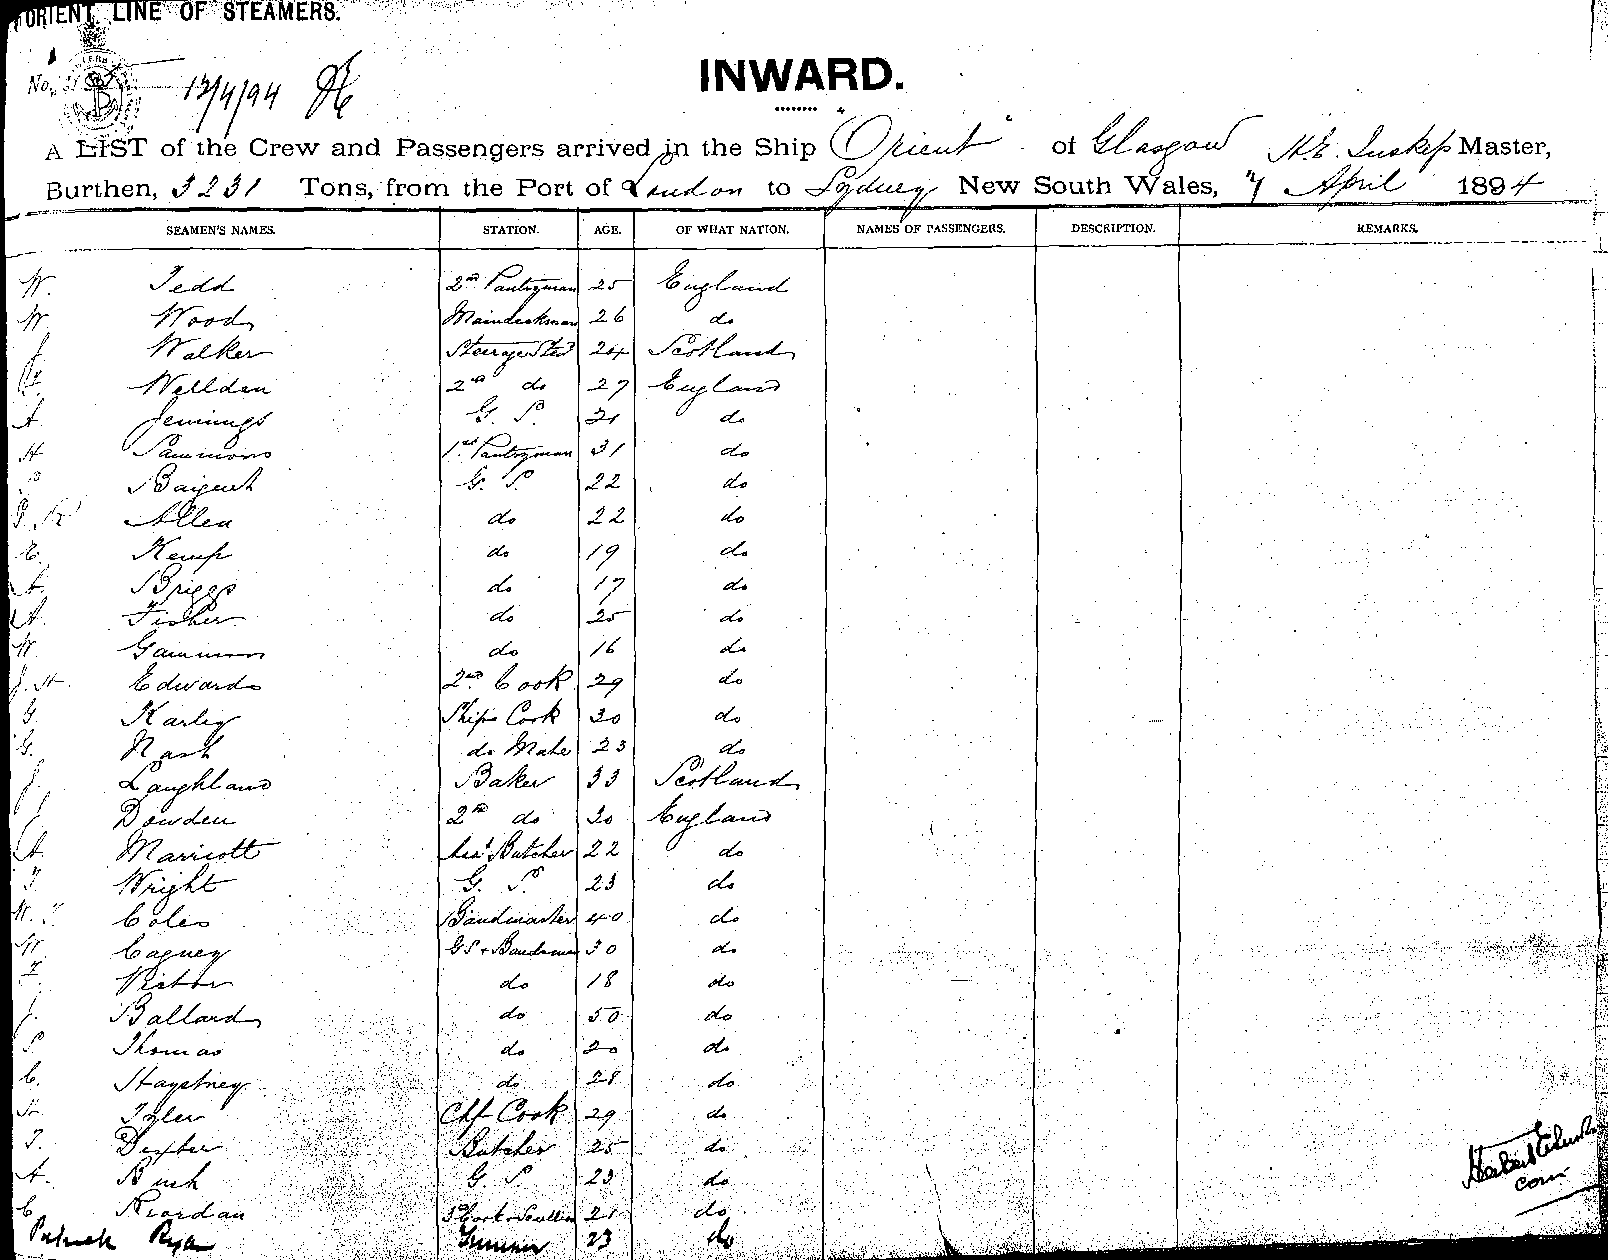 ORIENT LINE OF STEAMERS.
No. 31
13/4/94
INWARD.
A LIST of the Crew and Passengers arrived in the Ship "Orient" of Glasgow Inskip Master,
Burthen, 3231 Tons, from the Port of London to Sydney New South Wales, April 1894
SEAMEN'S NAMES. STATION. AGE. OF WHAT NATION. NAMES OF PASSENGERS. DESCRIPTION. REMARKS.
W. Tedd 2nd Pantryman 25 England
W. Wood Maindeckman 26 do
J. Walker Steerage Std 24 Scotland
Wellden 2nd do 27 England
A. Jennings G. S. 21 do
H Sammons 1st Pantryman 31 do
Baigent G. S. 22 do
Allen do 22 do
E. Kemp do 19 do
A. Briggs do 17 do
A. Fisher do 25 do
W. Gammon do 16 do
J. H. Edwards 2nd Cook 29 do
G. Karley Ships Cook 30 do
G. Nash do Mate 23 do
J. Laughland Baker 33 Scotland
J. Dowden 2nd do 30 England
A. Marriott Asst Butcher 22 do
T. Wright G. S. 23 do
W. T. Coles Bandmaster 40 do
W. Cagney GS + Bandsman 30 do
do 18 do
J. Ballard do 50 do
S Thomas do 20 do
C. do 28 do
H. Tyler Chf Cook 29 do
T. Dexter Butcher 25 do
A. Bush G S 23 do
C Riordan 3rd Cook + Scullion 21 do
Patrick Ryan 23 do